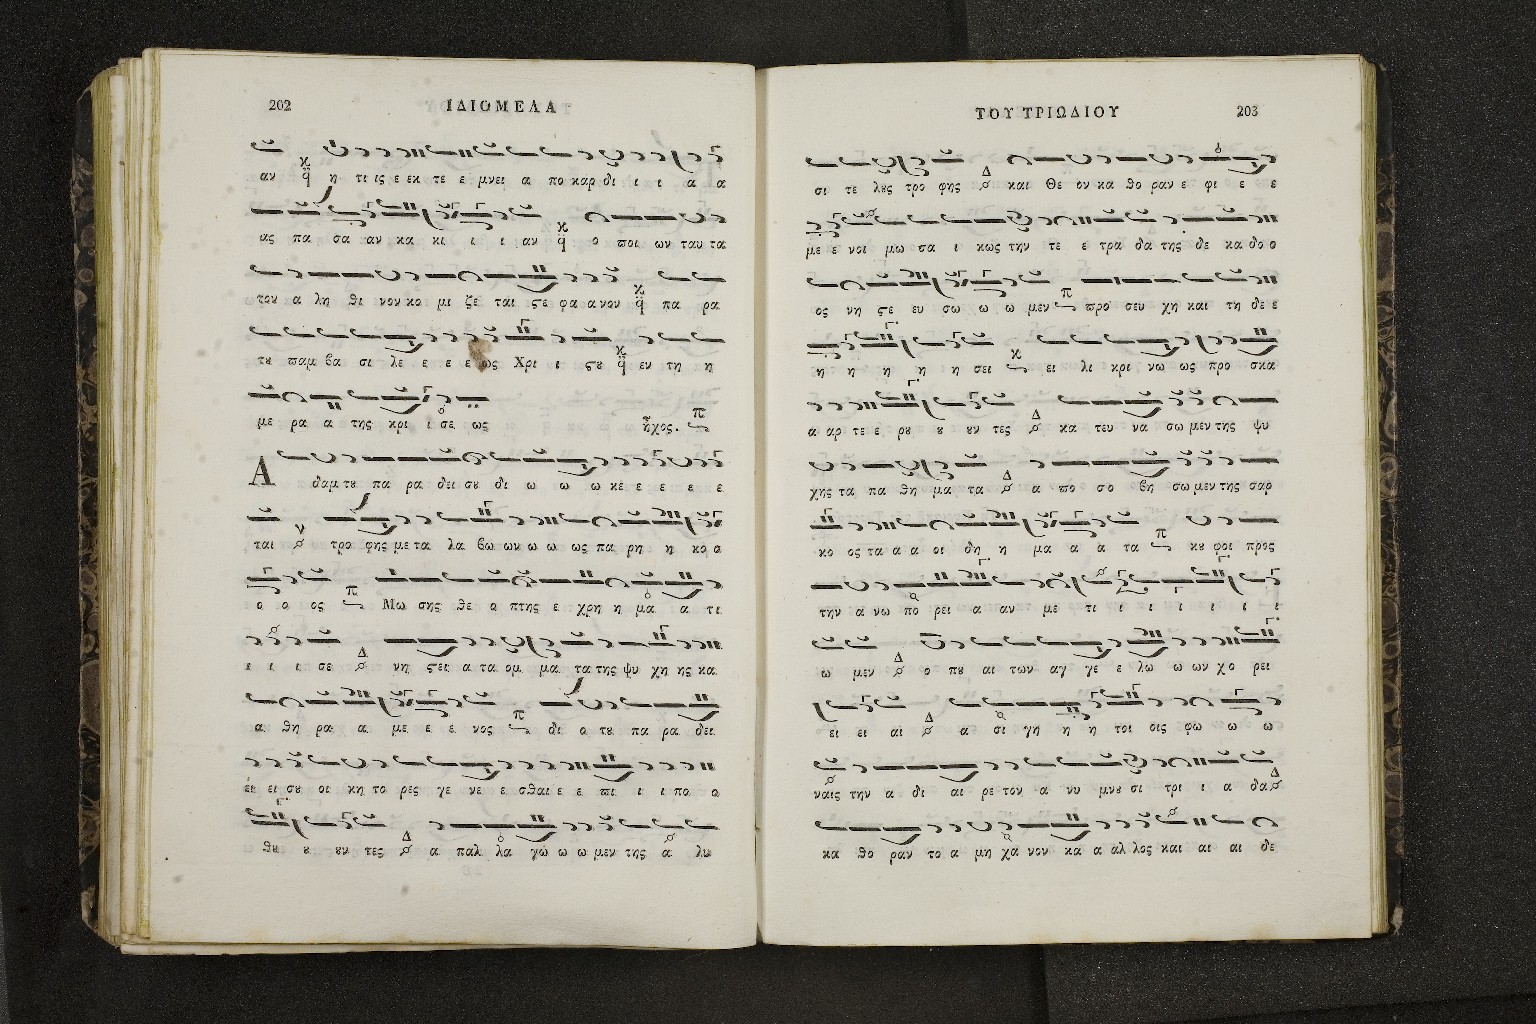 202
ΙΔΙΟΜΕΛΑ
αν η τι ις ε εκ τε ε μνει α πο καρ δι ι ι α α
ας πα σα αν κα κι ι ι αν ο ποι ων ταυ τα
τον α λη θι νον κο μι ζε ται ϛε φα α νον πα ρα
τȣ παμ βα σι λε ε ε ε ως Χρι ι ϛȣ εν τη η
με ρα α της κρι ι σε ως ἦχος.
Α δαμ τȣ πα ρα δει σȣ δι ω ω ω κε ε ε ε ε
ται τρο φης με τα λα βω ων ω ω ως πα ρη η κο ο
ο ο ος Μω σης θε ο πτης ε χρη η μα α τι
ι ι ι σε νη ϛει α τα ομ μα τα της ψυ χη ης κα
α θη ρα α με ε ε νος δι ο τȣ πα ρα δει
ει ει σȣ οι κη το ρες γε νε ε σθαι ε ε πι ι ι πο ο
θȣ ȣ ȣν τες α παλ λα γω ω ω μεν της α λυ
ΤΟΥ ΤΡΙΩΔΙΟΥ
203
σι τε λȣς τρο φης και Θε ον κα θο ραν ε φι ε ε
με ε νοι μω σα ι κως την τε ε τρα δα της δε κα δο ο
ος νη ϛε ευ σω ω ω μεν προ σευ χη και τη δε ε
η η η η η σει ει λι κρι νω ως προ σκα
α αρ τε ε ρȣ ȣ ȣν τες κα τευ να σω μεν της ψυ
χης τα πα θη μα τα α πο σο βη σω μεν της σαρ
κο ος τα α α οι δη η μα α α τα κȣ φοι προς
την α νω πο ρει α αν με τι ι ι ι ι ι ι
ω μεν ο πȣ αι των αγ γε ε λω ω ων χο ρει
ει ει αι α σι γη η η τοι οις φω ω ω
ναις την α δι αι ρε τον α νυ μνȣ σι τρι ι α δα
κα θο ραν το α μη χα νον κα α αλ λος και αι αι δε